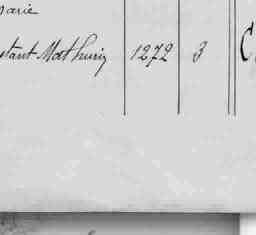 Marie
stant Mathurin 1272 3 C